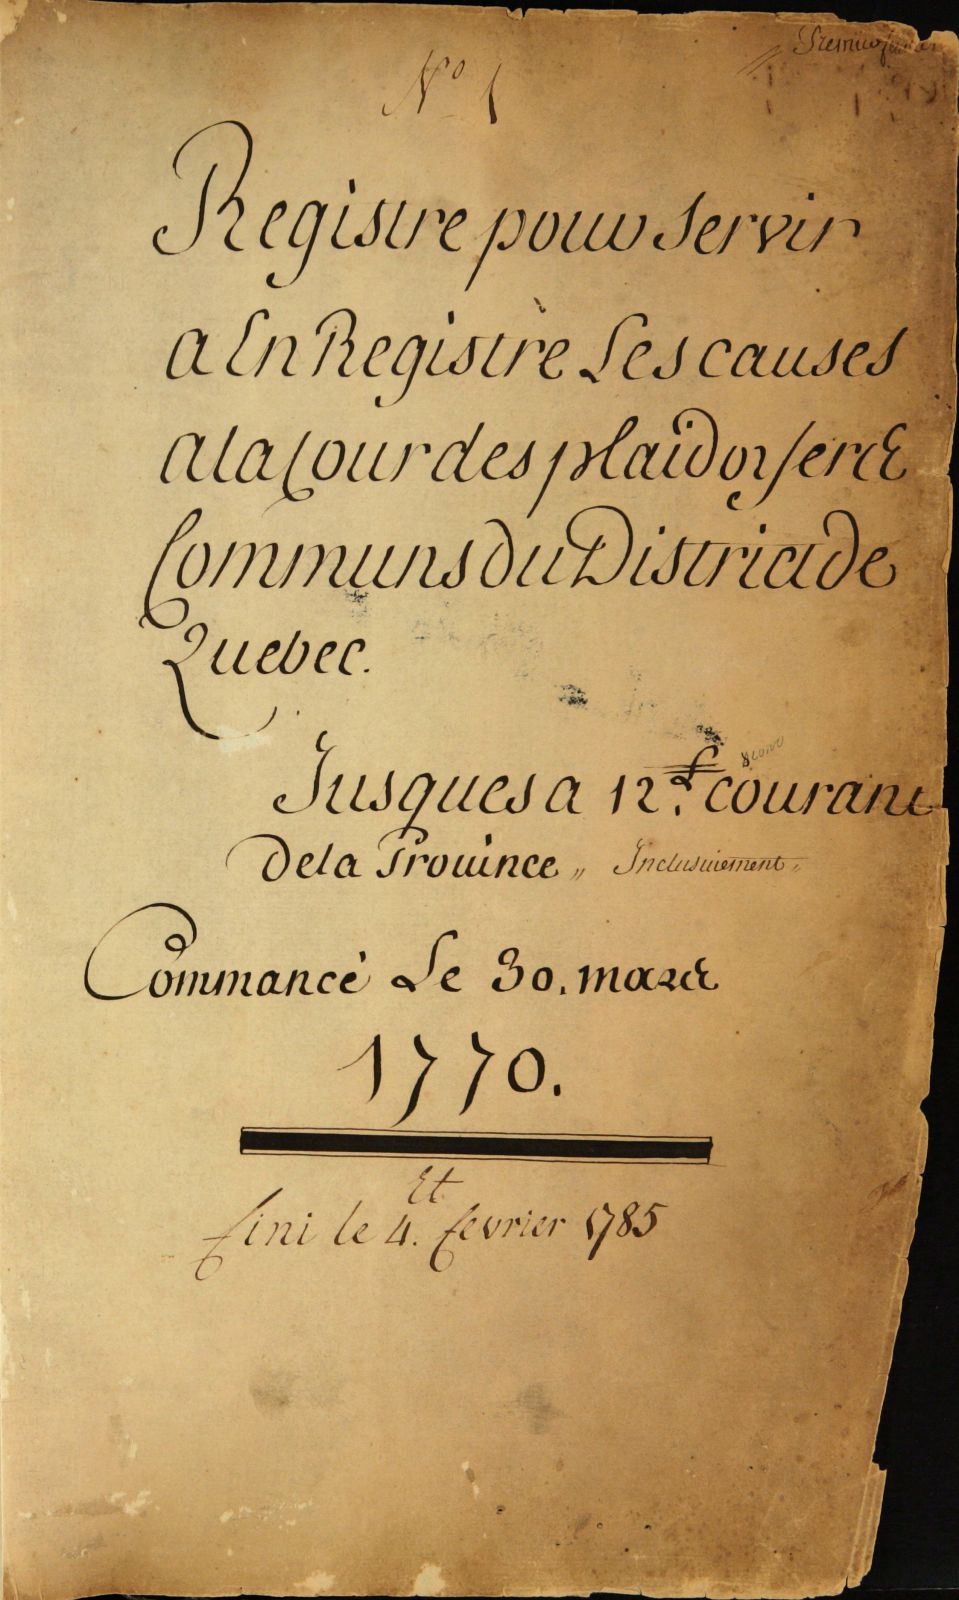 No 1
Registre pour Servir
a En Registre Les causes
a la Cour des plaidoyers
Communs du District de
Quebec.
Jusques a 12.₶ courant
De la Province „ Inclusivement „
Commancé Le 30. mars
1770.
Et
fini le 4. fevrier 1785